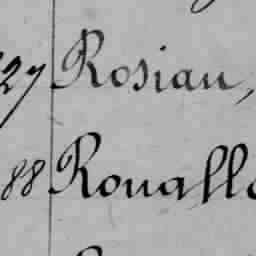 27 Rosiau,
88 Rouallo